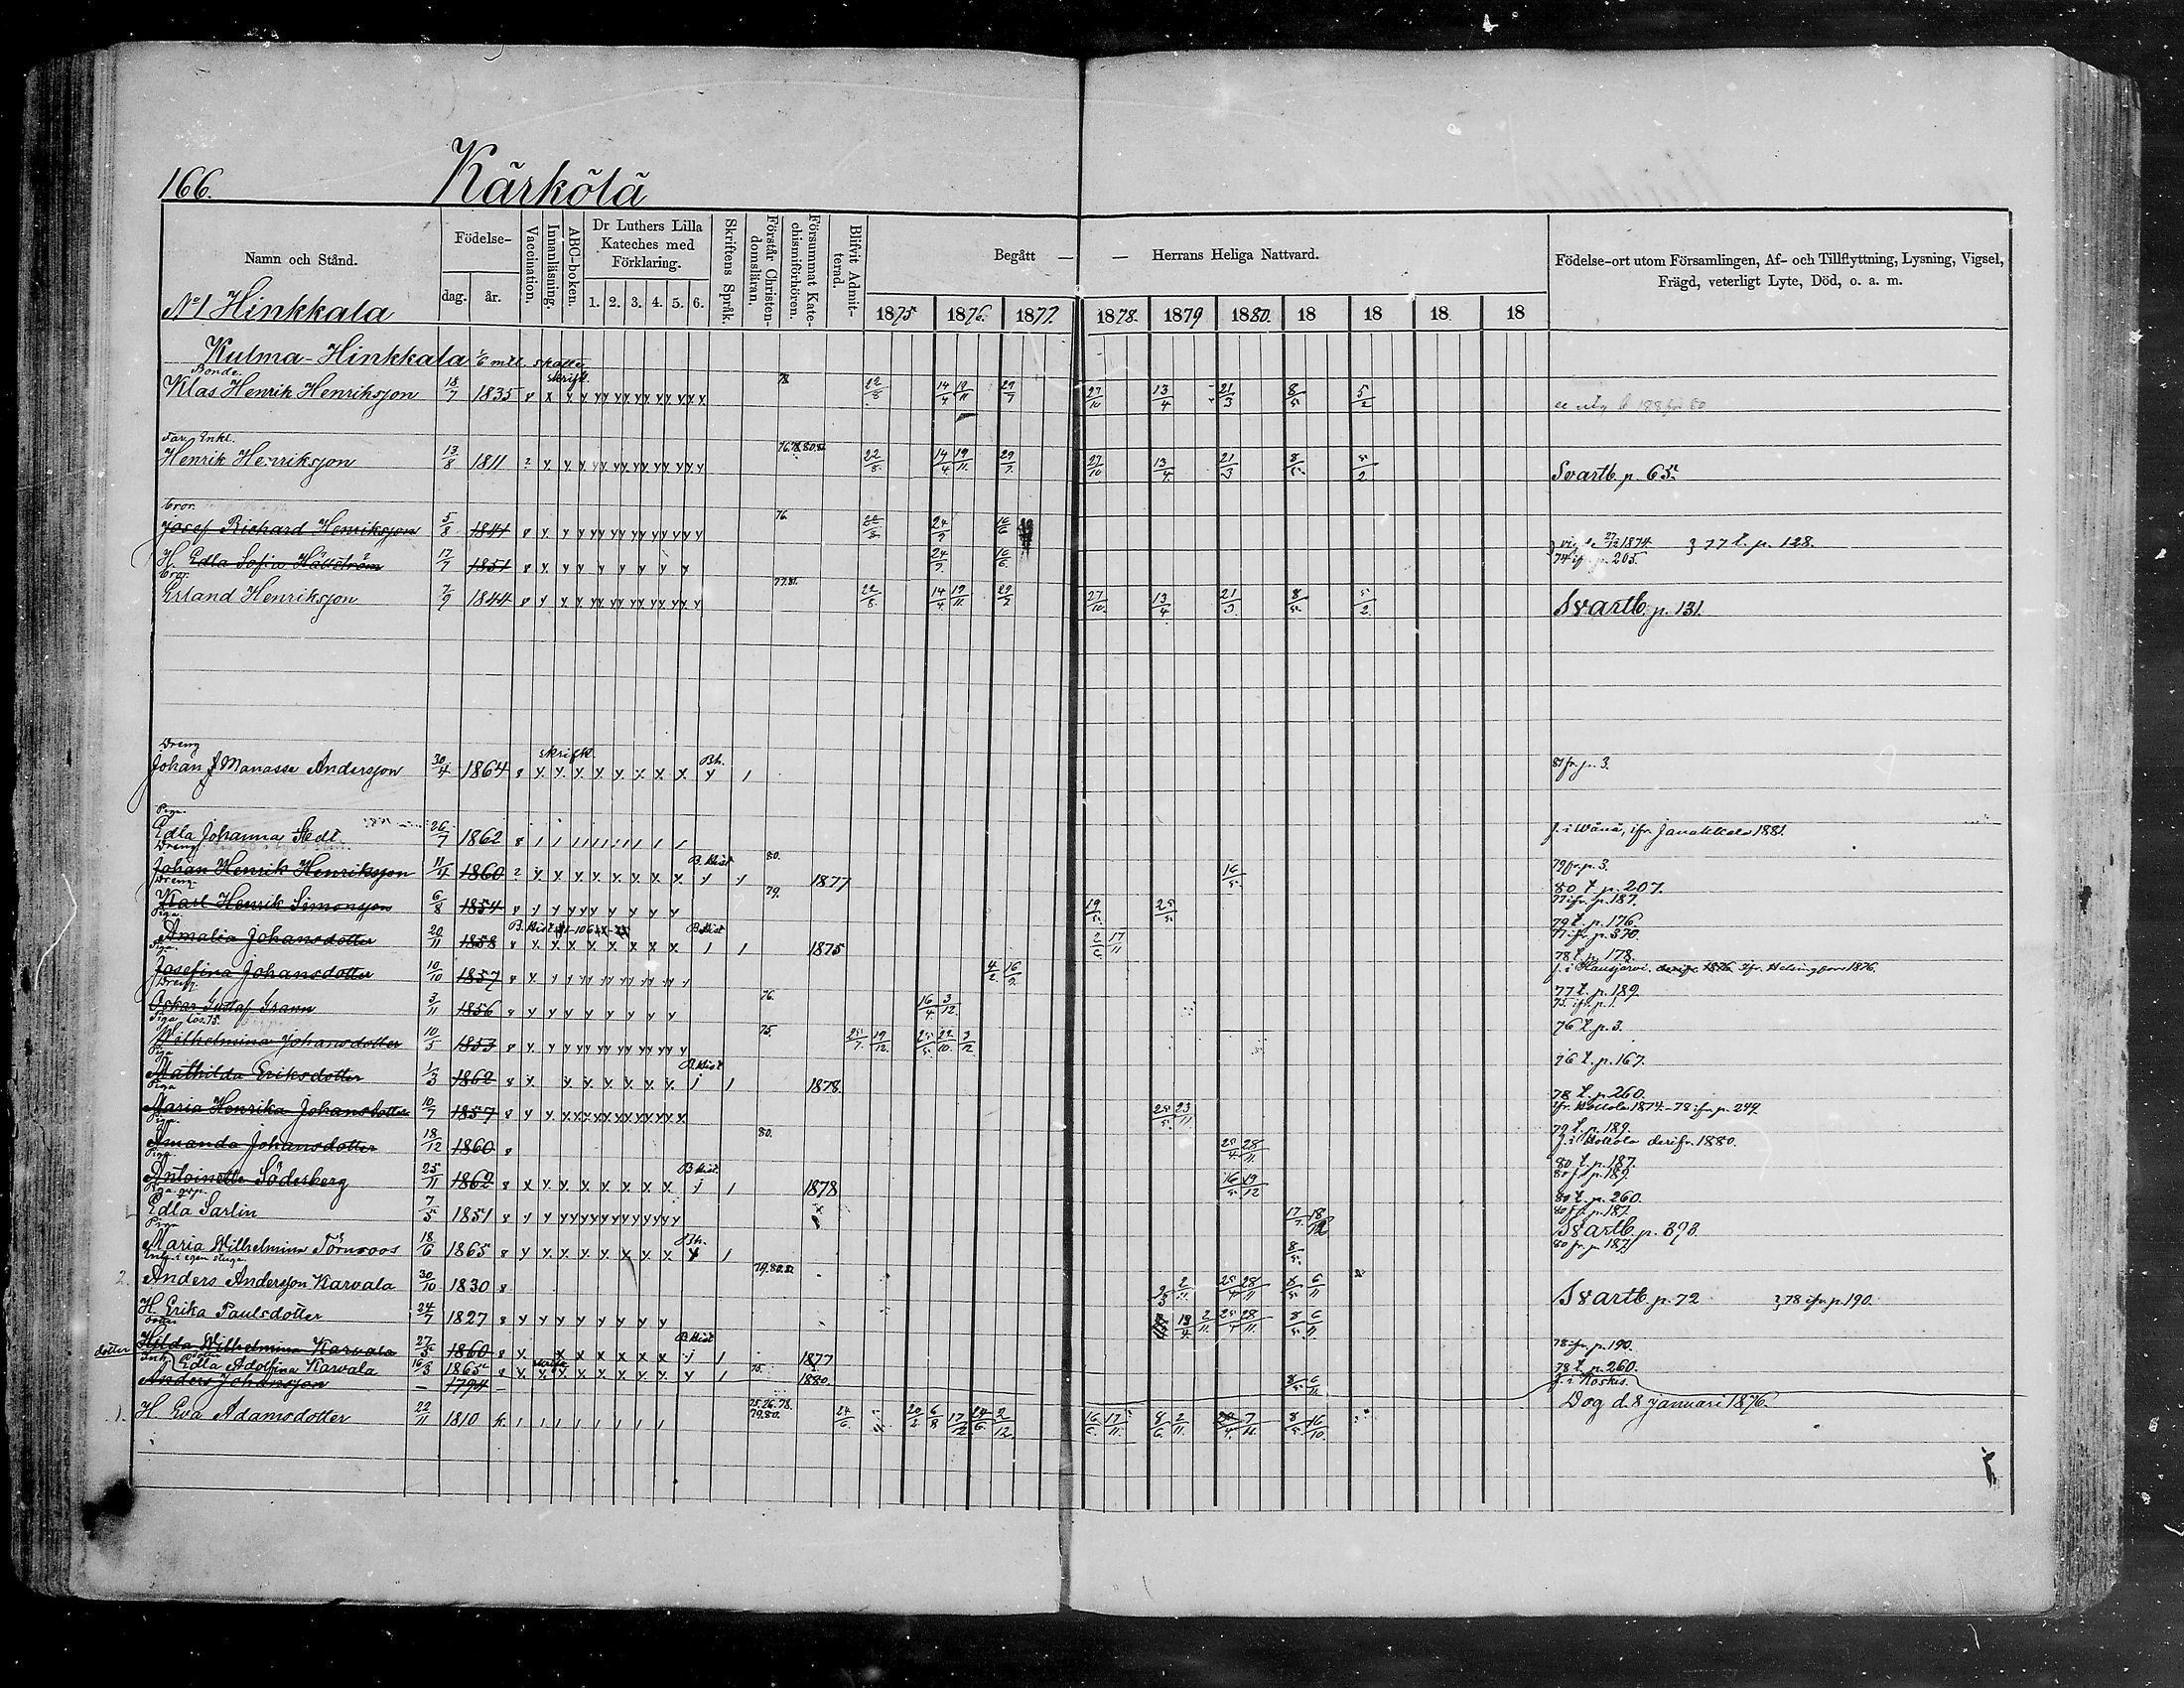 166. Kärkölä
Namn och Stånd.
Födelse-
dag. år.
Vaccination.
Innanläsning.
ABC-boken.
Dr Luthers Lilla Kateches med Förklaring.
1. 2. 3. 4. 5. 6.
Skriftens Språk.
Förstår Christendomsläran.
Försummat Katechismiförhören.
Blifvit Admitterad.
Begått — — Herrans Heliga Nattvard.
1875 1876. 1877. 1878. 1879 1880. 18 18 18 18
Födelse-ort utom Församlingen, Af- och Tillflyttning, Lysning, Vigsel,
Frägd, veterligt Lyte, Död, o. a. m.
No 1 Hinkkala
Kulma-Hinkkala 1/6 mtl. skatte
Bonde. skrifk. 78
Klas Henrik Henriksson 18/7 1835 22/8 14/4 19/11 29/7 27/10 13/4 21/3 8/5 5/2
Far, Enkl. 76.78.80.81.
Henrik Henriksson 13/8 1811 22/8 14/4 19/11 29/7 27/10 13/4 21/3 8/5 5/2 Svartb. p. 65.
bror 76.
Josef Richard Henriksson 5/8 1841 22/8 24/9 16/6
H. Edla Sofia Hällström 17/7 1851 24/9 16/6 27/12 1874 74 ifr. p. 205. } 77 t. p. 128.
bror. 77.81.
Erland Henriksson 7/9 1844 22/8 14/4 19/11 29/7 27/10 13/4 21/3 8/5 5/2 Svartb. p. 131.
Dreng skrifk. Bh.
Johan Manasse Andersson 30/4 1864 81 fr. p. 3.
Piga.
Edla Johanna Stedt 26/7 1862 f. i Wånå, ifr. Janakkala 1881.
Dreng B. Hist 80.
Johan Henrik Henriksson 11/4 1860 1877 16/5 79 fr. p. 3.
80 t. p. 207.
Dreng 79.
Karl Henrik Simonsson 6/8 1854 19/5 25/5 77 ifr. p. 187.
79 t. p. 176.
Piga B. Hist
Amalia Johansdotter 20/11 1858 1875 2/6 17/11 77 ifr. p. 370.
78 t. p. 178.
Piga.
Josefina Johansdotter 10/10 1857 4/2 16/9 f. i Hausjärvi. derifr. 1876 Ifr. Helsingfors 1876.
77 t. p. 189.
Dreng. 76.
Oskar Gustaf Grann 3/11 1856 16/4 3/12 75 ifr. p. 1.
76 t. p. 3.
Piga 75.
Wilhelmina Johansdotter 10/5 1853 25/7 19/12 25/5 22/10 3/12
76 t. p. 167.
Piga B. Hist
Mathilda Eriksdotter 1/3 1862 1878.
78 t. p. 260.
Piga
Maria Henrika Johansdotter 10/7 1857 25/5 23/11 ifr. Kollola 1874. - 78 ifr. p. 249
79 t. p. 189.
Piga. 80.
Amanda Johansdotter 18/12 1860 25/4 28/11 f. i Hollola derifr. 1880.
80 t. p. 187.
Piga. B Hist.
Antoinette Söderberg 25/11 1862 1878 16/5 19/12 80 f. p. 189.
80 t. p. 260.
Edla Sarlin 7/5 1851 17/7 18/12 80 fr. p. 187.
Svartb. p. 393.
Piga Bh.
Maria Wilhelmina Törnroos 18/6 1865 8/5 80 fr. p. 187.
Inh. i egen stuga 79.80.81
2. Anders Andersson Karvala 30/10 1830 2/3 2/11 25/4 28/11 6/11 Svartb. p. 72 } 78 ifr. p. 190.
H. Erika Paulsdotter 24/7 1827 13/4 2/11 25/4 28/11 8/5 6/11
dotter B. Hist
Hilda Wilhelmina Karvala 27/5 1860 1877 78 ifr. p. 190.
78 t. p. 260.
dotter
Edla Adolfina Karvala 16/3 1865 1880. 8/5 6/11
Inh. 75.
Anders Johansson — 1794 — f. i Koskis.
Dog d. 8 januari 1876.
75.76.78. 79.80.
1. H. Eva Adamsdotter 22/11 1810 k. 24/6 20/2 6/8 17/12 24/6 2/12 16/6 17/11 8/6 2/11 7/11 8/5 16/10